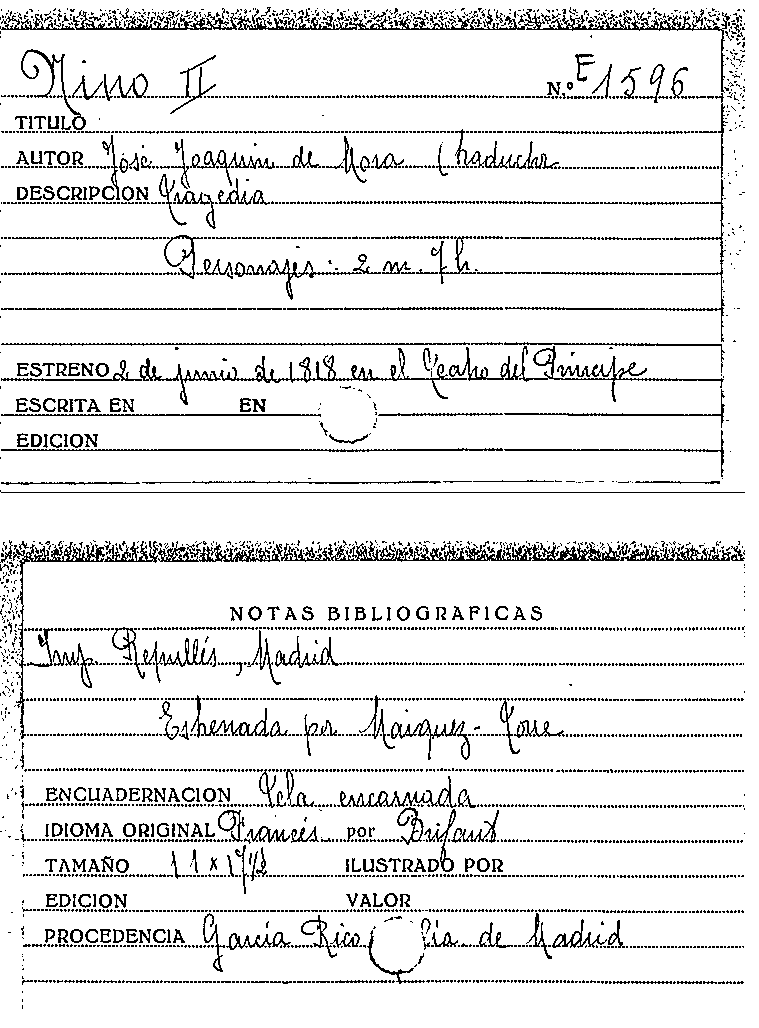 Nino II
N.º E 1596
TITULO
AUTOR José Joaquin de Mora (traductor
DESCRIPCION Tragedia
Personajes: 2 m. 7 h.
ESTRENO 2 de junio de 1818 en el Teatro del Principe
ESCRITA EN EN
EDICION
NOTAS BIBLIOGRAFICAS
Imp. Repullés, Madrid
Estrenada por Maiquez-Torre
ENCUADERNACION Tela encarnada
IDIOMA ORIGINAL Francés por Brifaut
TAMAÑO 11 x 17 1/2 ILUSTRADO POR
EDICION VALOR
PROCEDENCIA García Rico Cía. de Madrid